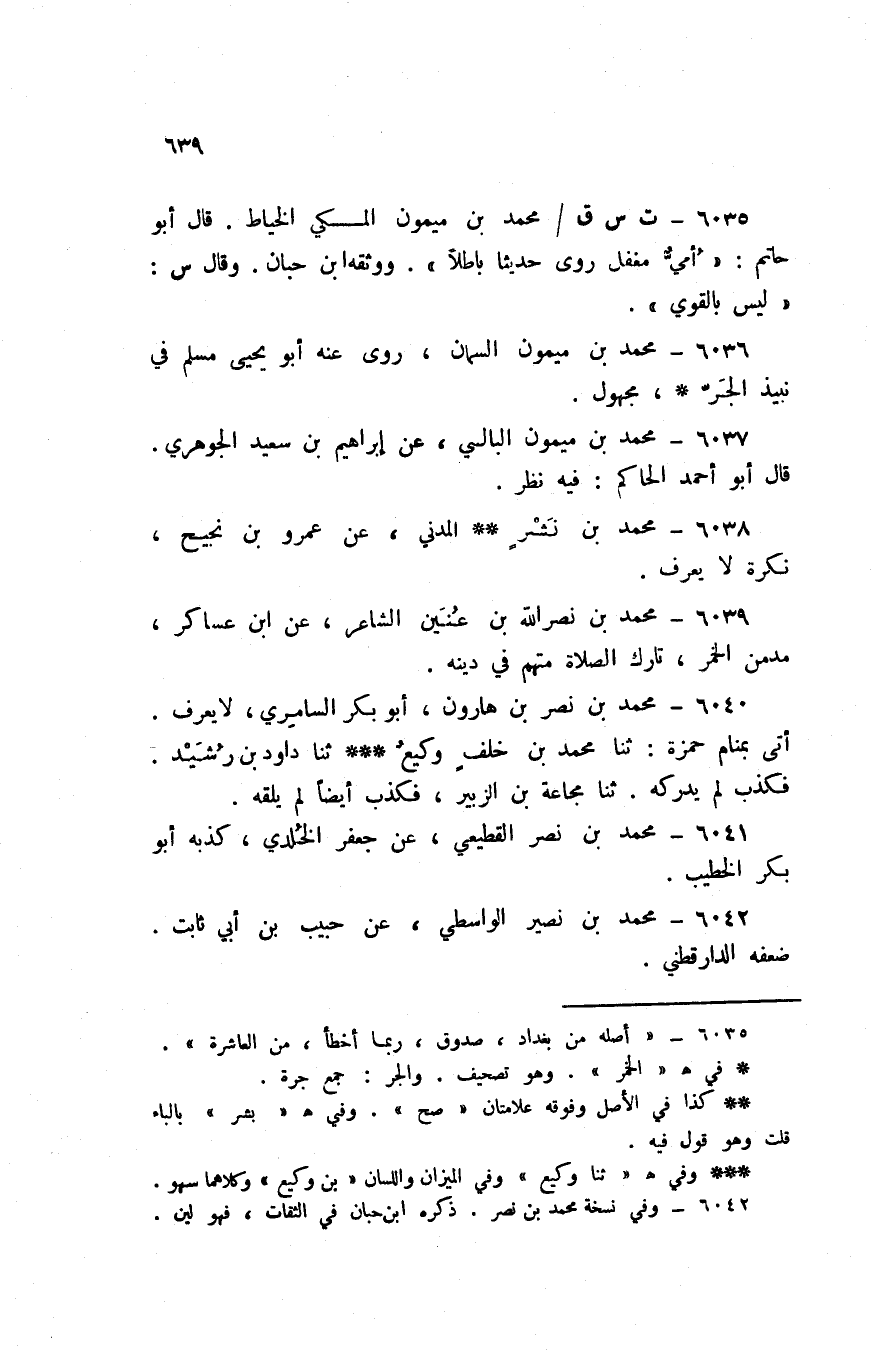 ٦٣٩
٦٠٣٥ – ت س ق / محمد بن ميمون المكي الخياط . قال أبو
حاتم : « أميٌّ مغفل روى حديثا باطلاً » . ووثقه ابن حبان . وقال س :
« ليس بالقوي » .
٦٠٣٦ – محمد بن ميمون السمان ، روى عنه أبو يحيى مسلم في
نبيذ الجَرّ * ، مجهول .
٦٠٣٧ – محمد بن ميمون البالسي ، عن إبراهيم بن سعيد الجوهري .
قال أبو أحمد الحاكم : فيه نظر .
٦٠٣٨ – محمد بن نَشْرٍ ** المدني ، عن عمرو بن نجيح ،
نكرة لا يعرف .
٦٠٣٩ – محمد بن نصرالله بن عُنَين الشاعر ، عن ابن عساكر ،
مدمن الخمر ، تارك الصلاة متهم في دينه .
٦٠٤٠ – محمد بن نصر بن هارون ، أبو بكر السامري ، لا يعرف .
أتى بمنام حمزة : ثنا محمد بن خلفٍ وكيعٌ *** ثنا داود بن رُشَيْد .
فكذب لم يدركه . ثنا مجاعة بن الزبير ، فكذب أيضاً لم يلقه .
٦٠٤١ – محمد بن نصر القطيعي ، عن جعفر الخُلدي ، كذبه أبو
بكر الخطيب .
٦٠٤٢ – محمد بن نصير الواسطي ، عن حبيب بن أبي ثابت .
ضعفه الدارقطني .
٦٠٣٥ – « أصله من بغداد ، صدوق ، ربما أخطأ ، من العاشرة » .
* في ه « الخمر » . وهو تصحيف . والجر : جمع جرة .
** كذا في الأصل وفوقه علامتان « صح » . وفي ه « بشر » بالباء
قلت وهو قول فيه .
*** وفي ه « ثنا وكيع » وفي الميزان واللسان « بن وكيع » وكلاهما سهو .
٦٠٤٢ – وفي نسخة محمد بن نصر . ذكره ابن حبان في الثقات ، فهو لين .